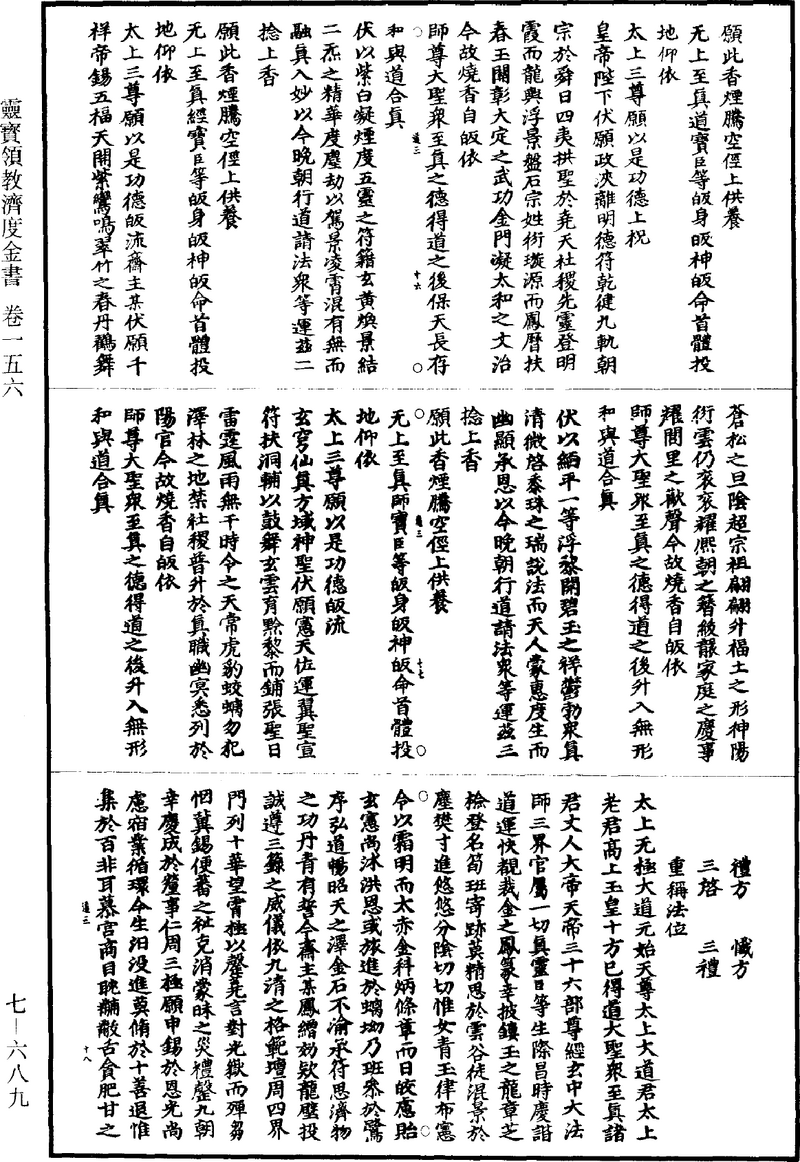 靈寶領教濟度金書 卷一五六
願此香煙騰空徑上供養
无上至真道寶臣等皈身皈神皈命首體投
地仰依
太上三尊願以是功德上祝
皇帝陛下伏願政浹離明德符乾健九軌朝
宗於舜日四夷拱聖於堯天社稷先靈登明
霞而龍輿浮景盤石宗姓衍璇源而鳳曆扶
春玉關彰大定之武功金門凝太和之文治
今故燒香自皈依
師尊大聖眾至真之德得道之後保天長存
和與道合真
伏以紫白凝煙度五靈之符籍玄黃煥景結
二炁之精華度塵劫以駕景凌霄混有無而
融真入妙以今晚朝行道請法眾等運茲二
捻上香
願此香煙騰空徑上供養
无上至真經寶臣等皈身皈神皈命首體投
地仰依
太上三尊願以是功德皈流齋主某伏願千
祥帝錫五福天開紫鸞鳴翠竹之春丹鶴舞
蒼松之旦陰超宗祖翩翩升福土之形神陽
衍雲仍袞袞耀熙朝之簪紱靄家庭之慶事
耀閭里之歡聲今故燒香自皈依
師尊大聖眾至真之德得道之後升入無形
和與道合真
伏以綿平一等浮黎開碧玉之祥鬱勃眾真
清微啓黍珠之瑞說法而天人蒙惠度生而
幽顯承恩以今晚朝行道請法眾等運茲三
捻上香
願此香煙騰空徑上供養
无上至真師寶臣等皈身皈神皈命首體投
地仰依
太上三尊願以是功德皈流
玄穹仙真方域神聖伏願憲天佐運翼聖宣
符扶洞輔以鼓舞玄雲育黔黎而鋪張聖日
雷霆風雨無干時令之天常虎豹蛟螭勿犯
澤林之地禁社稷普升於真職幽冥悉列於
陽官今故燒香自皈依
師尊大聖眾至真之德得道之後升入無形
和與道合真
禮方 懺方
三啓 三禮
重稱法位
太上无極大道元始天尊太上大道君太上
老君高上玉皇十方已得道大聖眾至真諸
君丈人大帝天帝三十六部尊經玄中大法
師三界官屬一切真靈臣等生際昌時慶詣
道運快覩裁金之鳳篆幸披鏤玉之龍章芝
檢登名筍班寄跡莫精思於雲谷徒混景於
塵樊寸進悠悠分陰切切惟女青玉律布憲
令以霜明而太赤金科炳條章而日皎慮貽
玄憲尚沐洪恩或旅進於螭坳乃班恭於鷺
序弘道暢昭天之澤金石不渝承符思濟物
之功丹青有誓今齋主某鳳繒効欵龍璧投
誠遵三籙之威儀依九清之格範壇周四界
門列十華望霄極以罄堯言對光嶽而殫芻
悃冀錫便蕃之祉克消蒙昧之災禮罄九朝
幸慶成於釐事仁周三極願申錫於恩光尚
慮宿業循環今生汨沒進莫脩於十善退惟
集於百非耳慕宮商目眈黼黻舌貪肥甘之
七—六八九